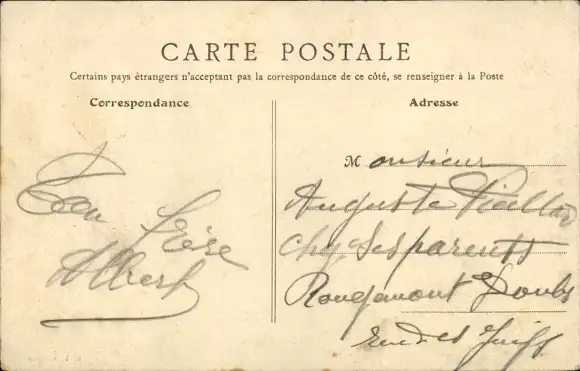 CARTE POSTALE
Certains pays étrangers n'acceptant pas la correspondance de ce côté, se renseigner à la Poste
Correspondance
Ton frère
Albert
Adresse
Monsieur
Auguste
chez ses parents
Rougemont Doubs
Rue des Juifs